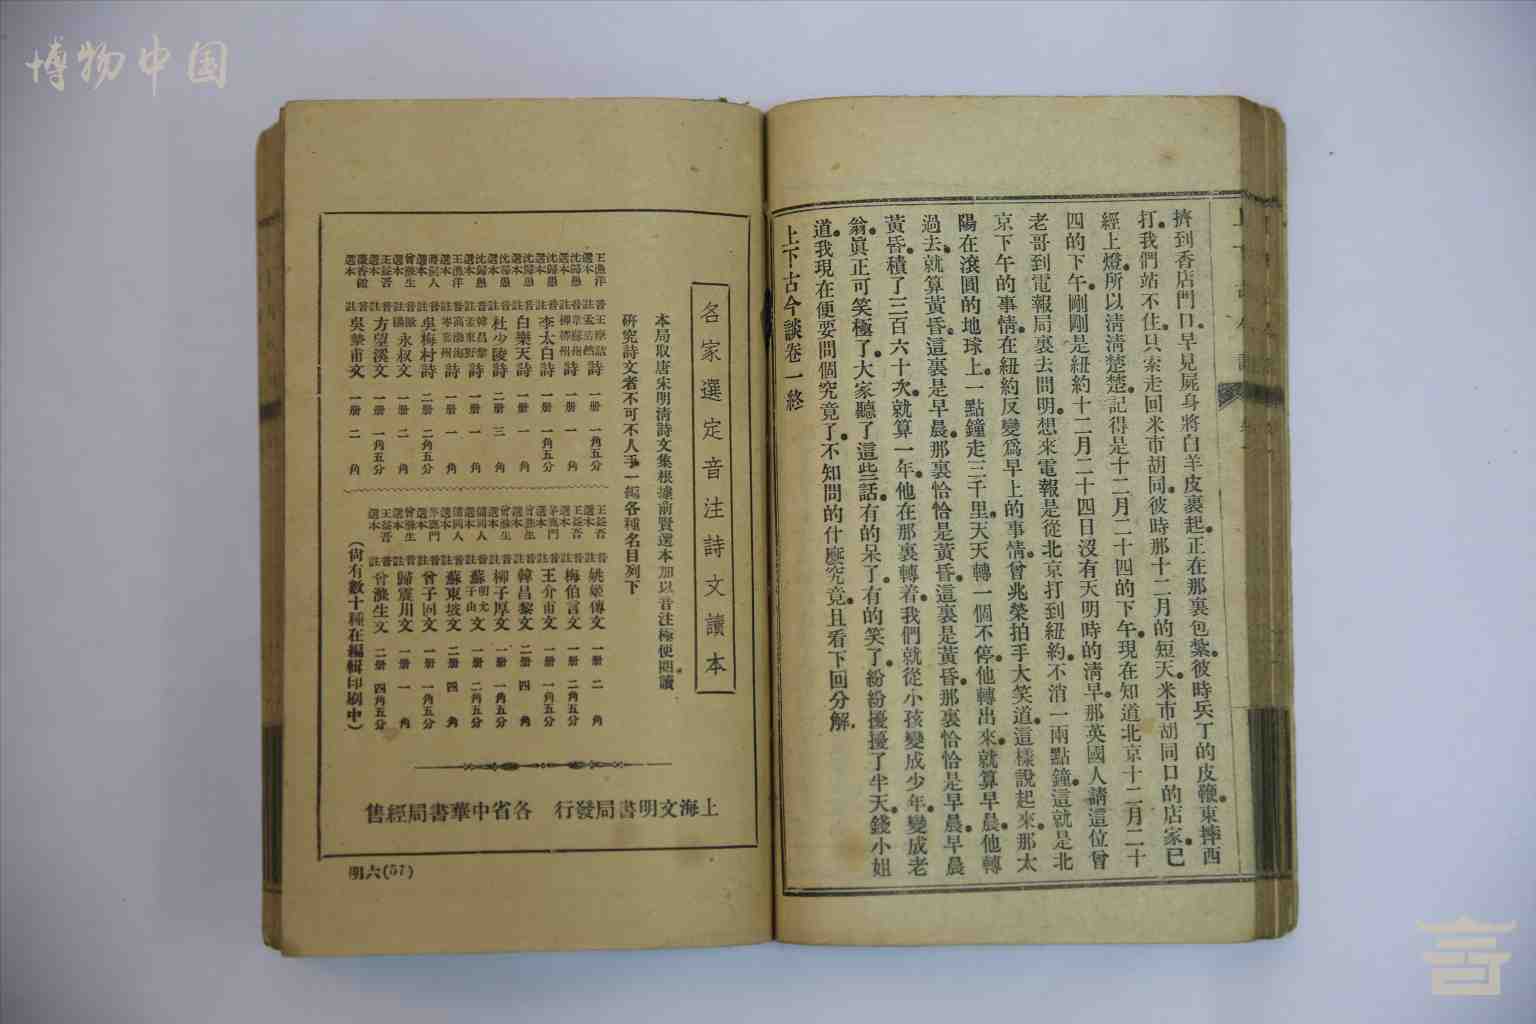 博物中国
擠到香店門口早見屍身將白羊皮裹起正在那裏包紮彼時兵丁的皮鞭東摔西
打我們站不住只索走回米市胡同彼時那十二月的短天米市胡同口的店家已
經上燈所以清清楚楚記得是十二月二十四的下午現在知道北京十二月二十
四的下午剛剛是紐約十二月二十四日沒有天明時的清早那英國人請這位曾
老哥到電報局裏去問明想來電報是從北京打到紐約不消一兩點鐘這就是北
京下午的事情在紐約反變爲早上的事情曾兆榮拍手大笑道這樣說起來那太
陽在滾圓的地球上一點鐘走三千里天天轉一個不停他轉出來就算早晨他轉
過去就算黃昏這裏是早晨那裏恰恰是黃昏這裏是黃昏那裏恰恰是早晨早晨
黃昏積了三百六十次就算一年他在那裏轉着我們就從小孩變成少年變成老
翁眞正可笑極了大家聽了這些話有的呆了有的笑了紛紛擾擾了半天錢小姐
道我現在便要問個究竟了不知問的什麽究竟且看下回分解
上下古今談卷一終
各家選定音注詩文讀本
本局取唐宋明清詩文集根據前賢選本加以音注極便閱讀
研究詩文者不可不人手一編各種名目列下
王漁洋選本 音註 王摩詰詩 一册 一角五分
沈歸愚選本 音註 孟浩然 韋蘇州 柳柳州詩 一册 一角
沈歸愚選本 音註 李太白詩 一册 一角五分
沈歸愚選本 音註 白樂天詩 一册 一角
沈歸愚選本 音註 杜少陵詩 二册 三角
沈歸愚選本 音註 韓昌黎 孟東野詩 一册 一角
王漁洋選本 音註 高渤海 岑嘉州詩 一册 一角
音註 吳梅村詩 二册 二角五分
曾滌生選本 音註 歐陽永叔文 一册 二角
王益吾選本 音註 方望溪文 一册 一角五分
音註 吳摯甫文 一册 二角
王益吾選本 音註 姚姬傳文 一册 二角
王益吾選本 音註 梅伯言文 一册 二角五分
茅鹿門選本 音註 王介甫文 一册 一角五分
曾滌生選本 音註 韓昌黎文 二册 四角
音註 柳子厚文 一册 一角五分
儲同人選本 音註 蘇明允 蘇子由文 一册 二角五分
儲同人選本 音註 蘇東坡文 二册 四角
茅鹿門選本 音註 曾子固文 一册 一角五分
曾滌生選本 音註 歸震川文 一册 一角
王益吾選本 音註 曾滌生文 二册 四角五分
（尙有數十種在編輯印刷中）
上海文明書局發行 各省中華書局經售
明六(57)